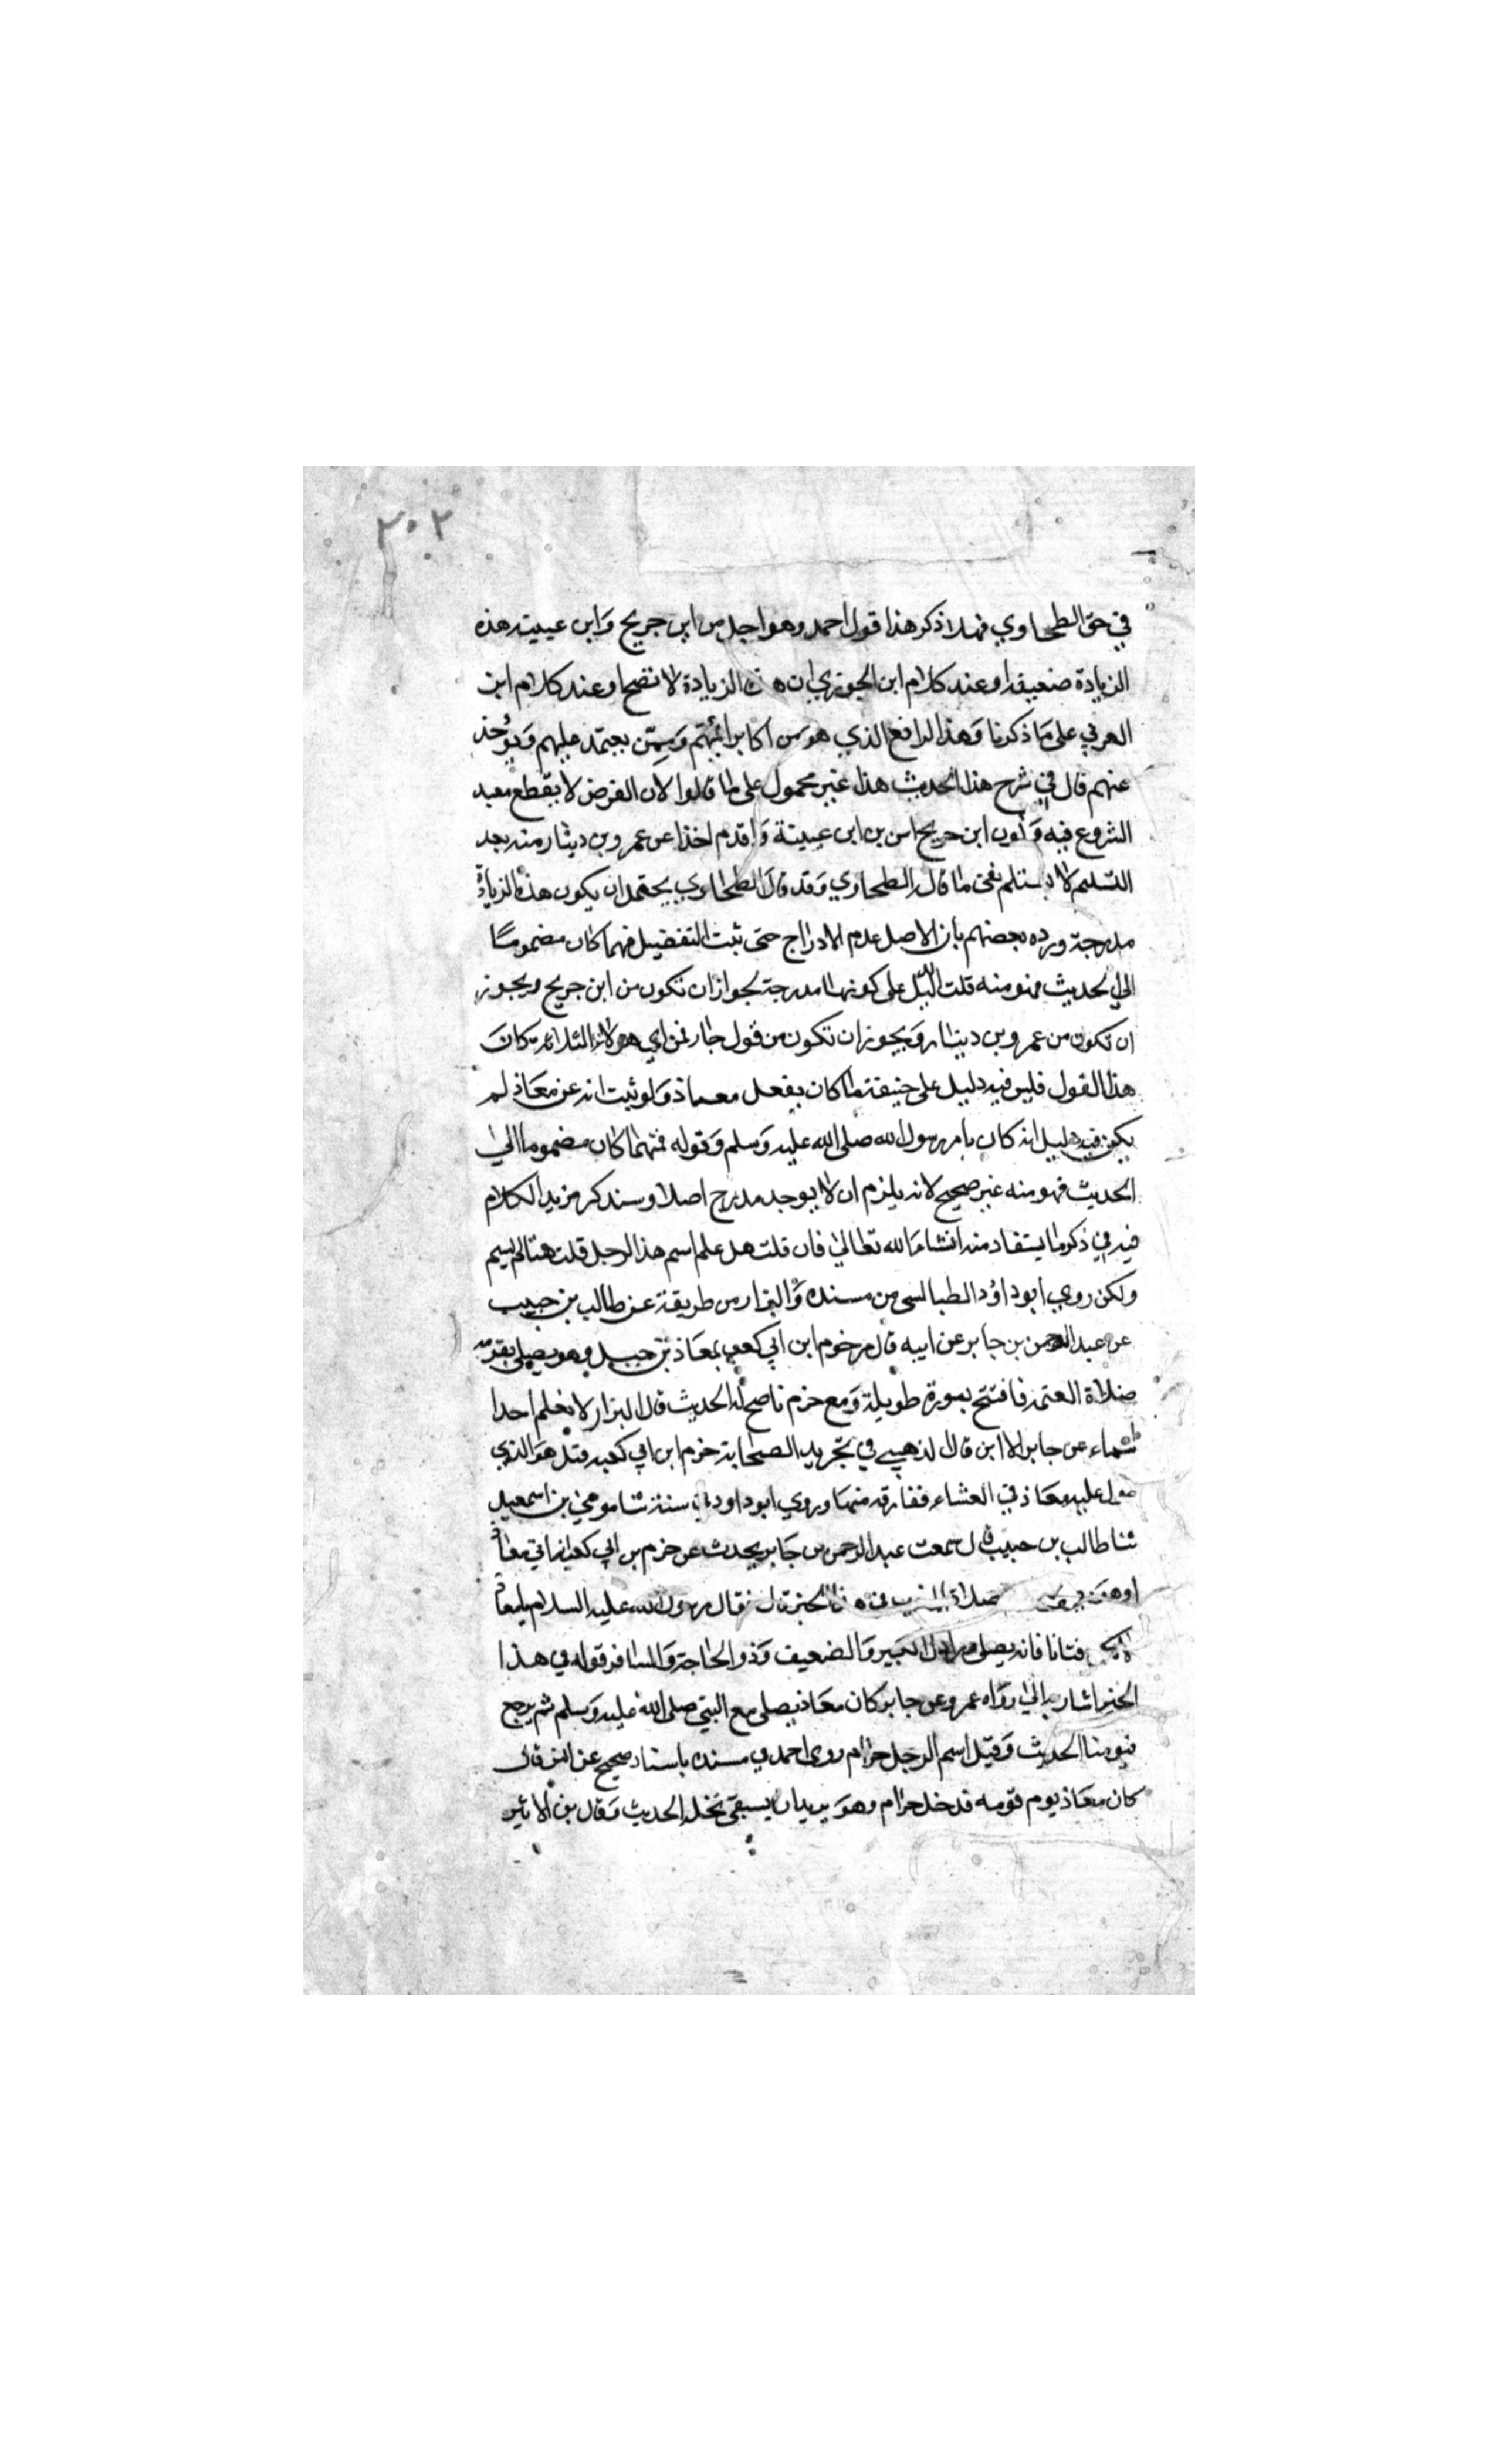 ٣٠٢
في حق الطحاوي فهلا ذكر هذا قول احمد وهو اجل من ابن جريج وابن عيينة هذه
الزيادة ضعيفة او عند كلام ابن الجوزي ان هذه الزيادة لا تصح او عند كلام ابن
العربي على ما ذكرنا وهذا الرافعي الذي هو من اكابر ائمتهم وممن يعتمد عليهم ويؤخذ
عنهم قال في شرح هذا الحديث هذا غير محمول على ما قالوا لان الفرض لا يقطع بعد
الشروع فيه وكون ابن جريج اسن من ابن عيينة واقدم اخذا عن عمرو بن دينار منه بعد
التسليم لا يستلزم نفي ما قاله الطحاوي وقد قال الطحاوي يحتمل ان يكون هذه الزيادة
مدرجة ورده بعضهم بان الاصل عدم الادراج حتى يثبت التفصيل فمهما كان مضموما
الى الحديث فهو منه قلت الدليل على كونها مدرجة لجواز ان تكون من ابن جريج ويجوز
ان تكون من عمرو بن دينار ويجوز ان تكون من قول جابر فمن اي هولاء الثلاثة كان
هذا القول فليس فيه دليل على حقيقة ما كان يفعل معاذ ولو ثبت انه عن معاذ لم
يكن فيه دليل انه كان بامر رسول الله صلى الله عليه وسلم وقوله فمهما كان مضموما الى
الحديث فهو منه غير صحيح لانه يلزم ان لا يوجد مدرج اصلا وسنذكر مزيد الكلام
فيه في ذكر ما يستفاد منه انشاء الله تعالى فان قلت هل علم اسم هذا الرجل قلت هنا لم يسم
ولكن روي ابو داود الطيالسي من مسنده والبزار من طريقة عن طالب بن حبيب
عن عبد الرحمن بن جابر عن ابيه قال مر حزم ابن ابي كعب بمعاذ بن جبل وهو يصلي بقومه
صلاة العتمة فافتتح بسورة طويلة ومع حزم ناضح له الحديث قال البزار لا نعلم احدا
سماه عن جابر الا ابن قال الذهبي في تجريد الصحابة حزم ابن ابي كعب قيل هو الذي
طول عليه معاذ في العشاء ففارقه منها وروي ابو داود في سننه ثنا موسى بن اسمعيل
ثنا طالب بن حبيب قال سمعت عبد الرحمن بن جابر يحدث عن حزم بن ابي كعب انه اتى معاذ
وهو صلاة المغرب في هذا الخبر قال فقال رسول الله عليه السلام يامعاذ
لا تكن فتانا فانه يصلي وراءك الكبير والضعيف وذو الحاجة والمسافر قوله في هذا
الخبر اشار به الى رواه عمرو عن جابر كان معاذ يصلي مع النبي صلى الله عليه وسلم ثم يرجع
فيؤمنا الحديث وقيل اسم الرجل حرام روى احمد في مسنده باسناد صحيح عن انس قال
كان معاذ يوم قومه فدخل حرام وهو يريد ان يسقى نخله الحديث وقال بن الاثير